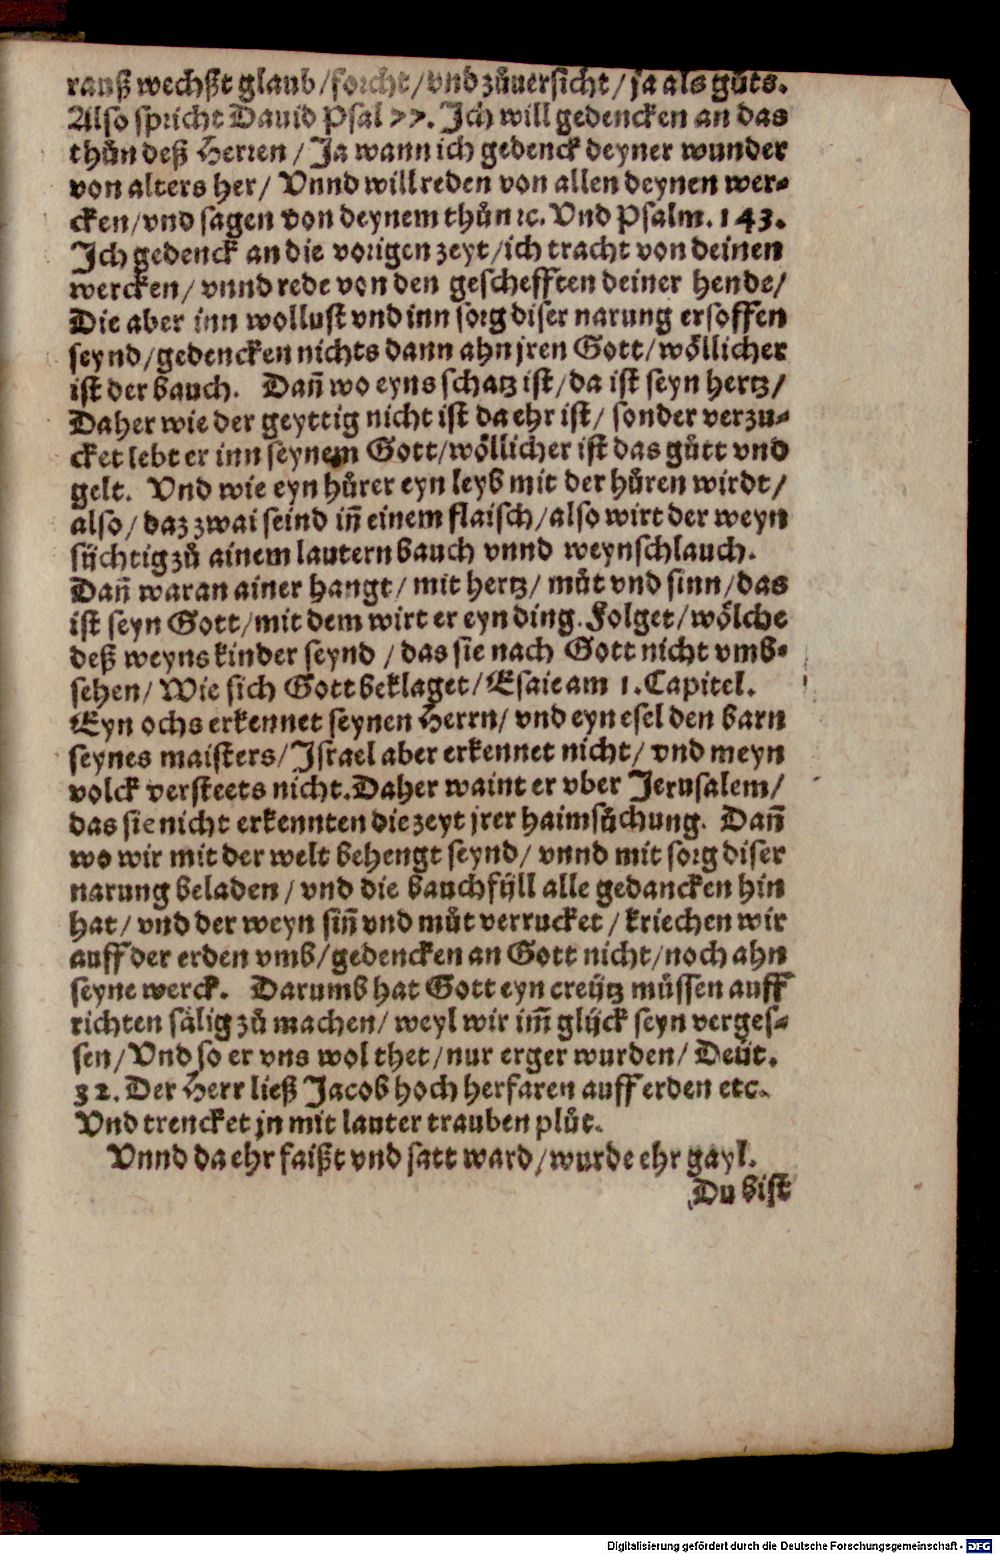 rauß wechßt glaub/forcht/vnd zůuersicht/ja als gůts.
Also spricht Dauid Psal 77. Ich will gedencken an das
thůn deß Herren/Ja wann ich gedenck deyner wunder
von alters her/Vnnd will reden von allen deynen wer-
cken/vnd sagen von deynem thůn ꝛc. Vnd Psalm. 143.
Ich gedenck an die vorigen zeyt/ich tracht von deinen
wercken/vnnd rede von den geschefften deiner hende/
Die aber inn wollust vnd inn sorg diser narung ersoffen
seynd/gedencken nichts dann ahn jren Gott/wöllicher
ist der bauch. Dan̄ wo eyns schatz ist/da ist seyn hertz/
Daher wie der geyttig nicht ist da ehr ist/sonder verzu-
cket lebt er inn seynem Gott/wöllicher ist das gůtt vnd
gelt. Vnd wie eyn hůrer eyn leyb mit der hůren wirdt/
also/daz zwai seind in̄ einem flaisch/also wirt der weyn
süchtig zů ainem lautern bauch vnnd weynschlauch.
Dan̄ waran ainer hangt/mit hertz/můt vnd sinn/das
ist seyn Gott/mit dem wirt er eyn ding. Folget/wölche
deß weyns kinder seynd/das sie nach Gott nicht vmb-
sehen/Wie sich Gott beklaget/Esaie am 1. Capitel.
Eyn ochs erkennet seynen Herrn/vnd eyn esel den barn
seynes maisters/Israel aber erkennet nicht/vnd meyn
volck versteets nicht. Daher waint er vber Jerusalem/
das sie nicht erkennten die zeyt jrer haimsůchung. Dan̄
wo wir mit der welt behengt seynd/vnnd mit sorg diser
narung beladen/vnd die bauchfüll alle gedancken hin
hat/vnd der weyn sin̄ vnd můt verrucket/kriechen wir
auff der erden vmb/gedencken an Gott nicht/noch ahn
seyne werck. Darumb hat Gott eyn creütz müssen auff
richten sälig zů machen/weyl wir im̄ glück seyn verges-
sen/Vnd so er vns wol thet/nur erger wurden/Deüt.
32. Der Herr ließ Jacob hoch herfaren auff erden etc.
Vnd trencket jn mit lauter trauben plůt.
Vnnd da ehr faißt vnd satt ward/wurde ehr gayl.
Du bist
Digitalisierung gefördert durch die Deutsche Forschungsgemeinschaft - DFG